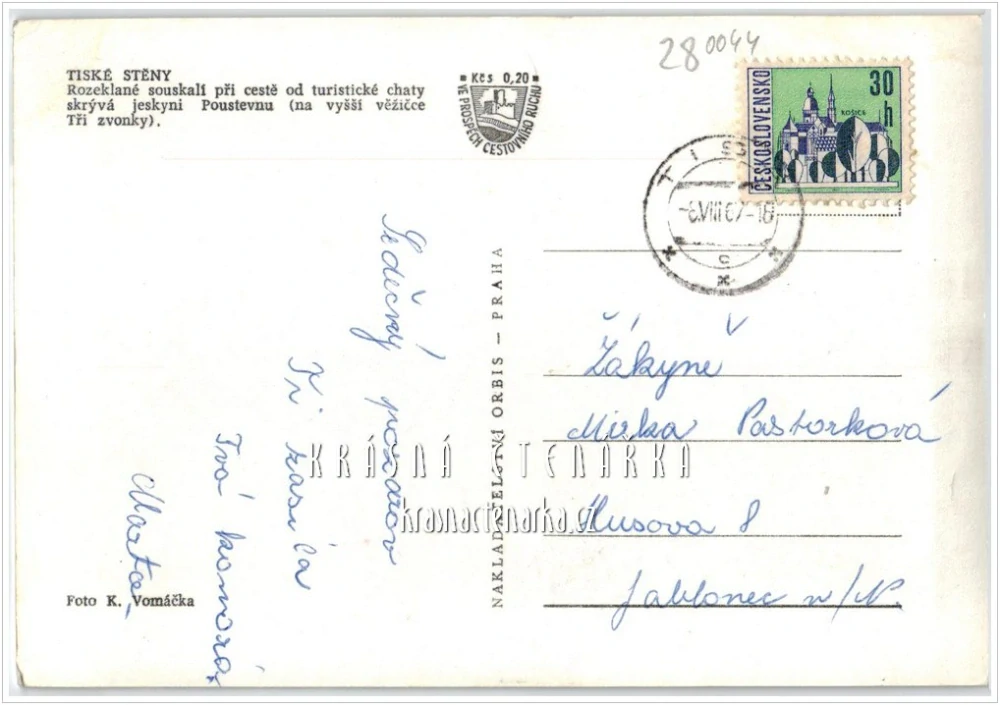 TISKÉ STĚNY
Rozeklané souskalí při cestě od turistické chaty
skrývá jeskyni Poustevnu (na vyšší věžičce
Tři zvonky).
Kčs 0,20
VE PROSPĚCH CESTOVNÍHO RUCHU
28 0044
ČESKOSLOVENSKO
30 h
KOŠICE
TISÁ
-6.VIII.67-18
c
Srdečný pozdrav
Ti zasílá
Tvá komorá,
Marta,
Foto K. Vomáčka
NAKLADATELSTVÍ ORBIS — PRAHA
Žákyně
Mirka Pastorková
Husova 8
Jablonec n/N.
KRÁSNÁ TENÁRKA
krasnactenarka.cz